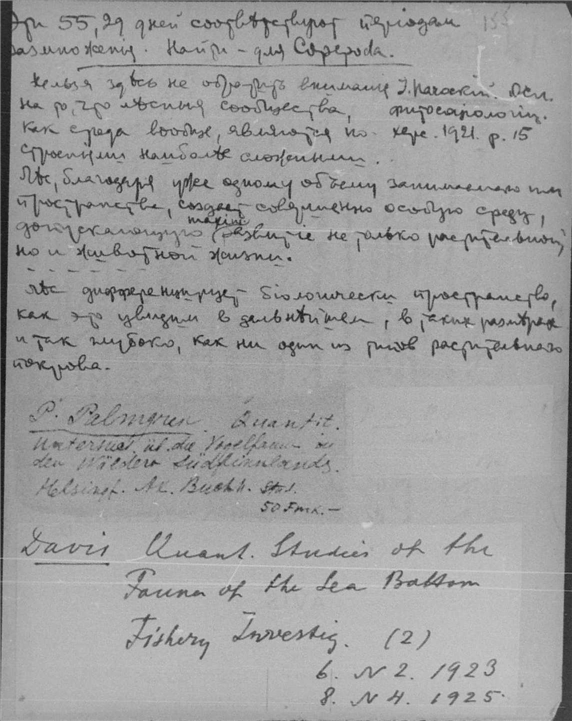 Эти 55, 29 дней соотвѣтствуют періодам
размноженія. Найти – для Coperoda.
Нельзя здѣсь не обратить вниманія
на то, что лѣсныя сообщества,
как среда вообще, являются по
строенію наиболѣе сложными.
І. Пачоскій.
фитосоціологіи.
Херс. 1921. р. 15
Лѣс, благодаря уже одному объему занимаемаго им
пространства, создает совершенно особую среду,
допускающую развитіе не только растительной,
но и животной жизни.
- - - - - -
Лѣс дифференцирует біологически пространство,
как это увидим в дальнѣйшем, в таких размѣрах
и так глубоко, как ни один из типов растительнаго
покрова.
P. Palmgren. Quantit.
Untersuch üb. die Vogelfauna in
den Wäldern Südfinnlands.
Helsingf. Ak. Buchh.
50 Fmk. –
Davis Quant. Studies of the
Fauna of the Sea Bottom
Fishery Investig. (2)
6. N 2. 1923
8. N 4. 1925